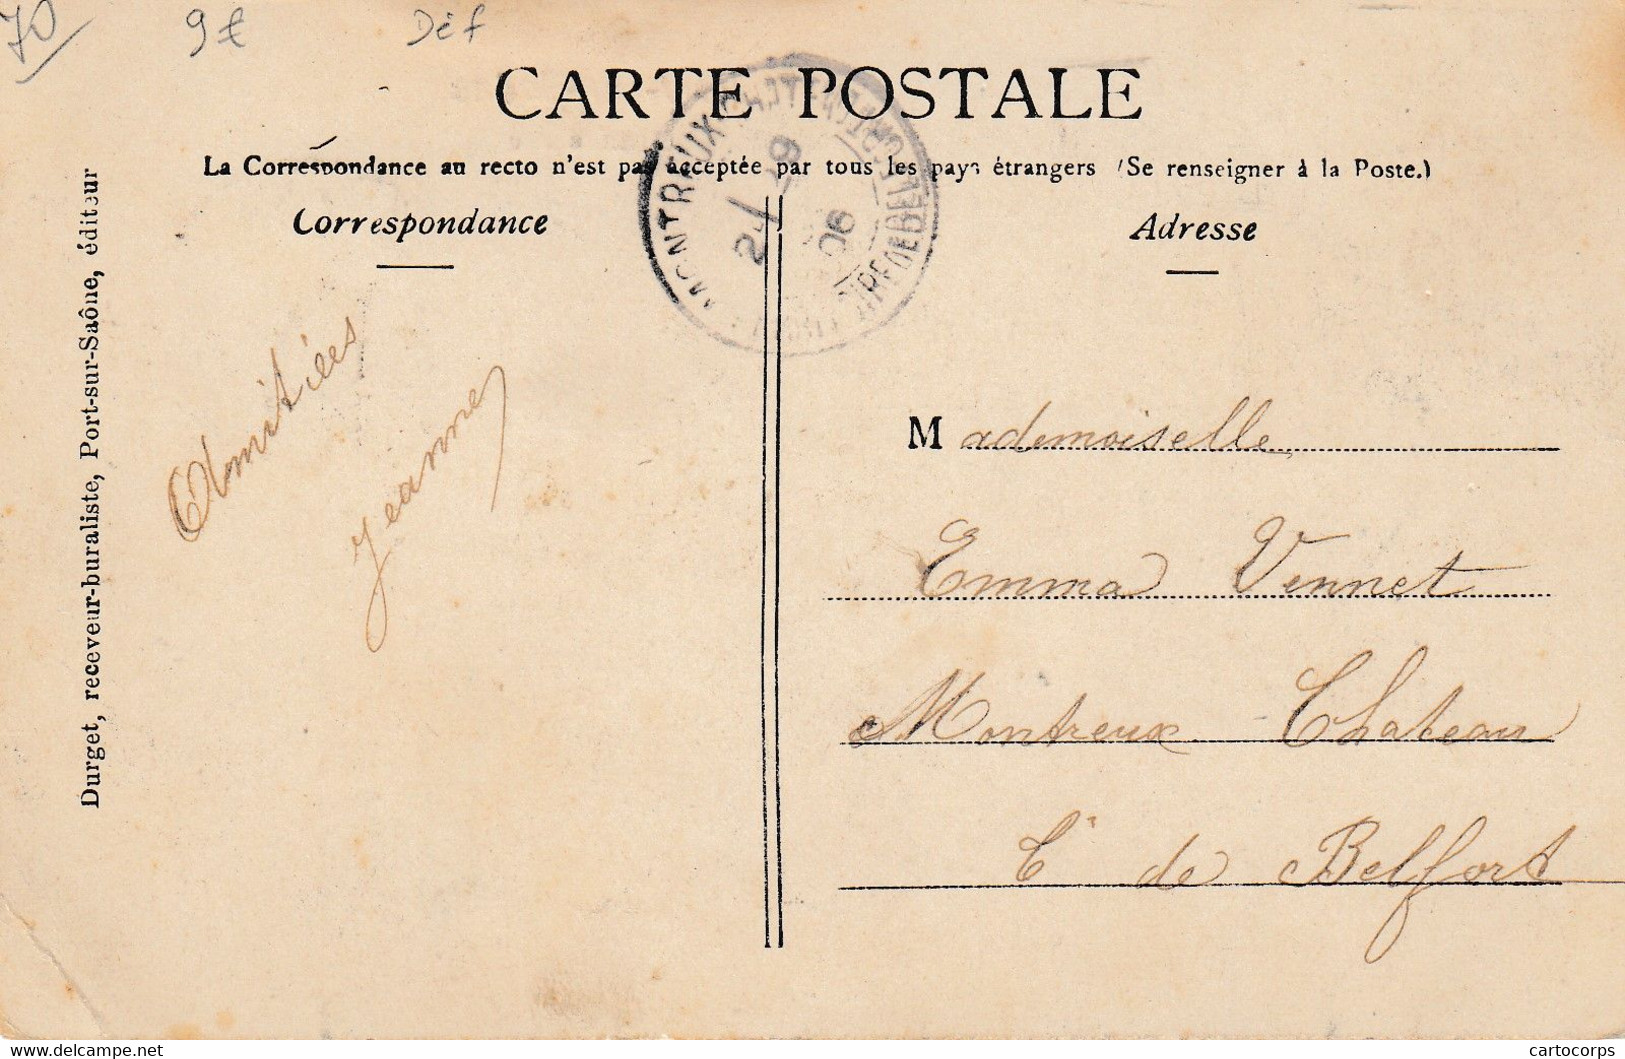 70
9€
Déf
CARTE POSTALE
La Correspondance au recto n'est pas acceptée par tous les pays étrangers (Se renseigner à la Poste.)
Correspondance
Adresse
MONTREUX-
21 -9
06
BELFORT
Durget, receveur-buraliste, Port-sur-Saône, éditeur
Amitiées
Jeanne
Mademoiselle
Emma Vennet
Montreux-Chateau
de Belfort
cartocorps